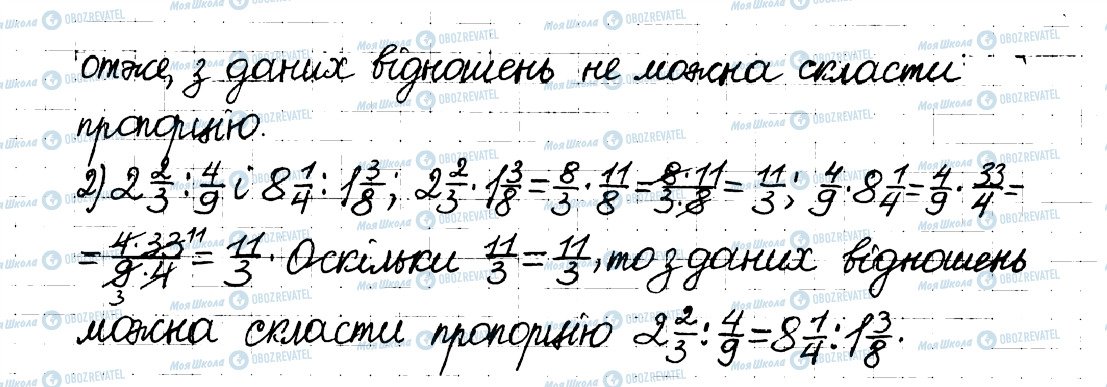 отже, з даних відношень не можна скласти
пропорцію.
2) 2 2/3 : 4/9 і 8 1/4 : 1 3/8; 2 2/3 · 1 3/8 = 8/3 · 11/8 = 8·11/3·8 = 11/3; 4/9 · 8 1/4 = 4/9 · 33/4 =
= 4·33 11/9·4 3 = 11/3. Оскільки 11/3 = 11/3, то з даних відношень
можна скласти пропорцію 2 2/3 : 4/9 = 8 1/4 : 1 3/8.